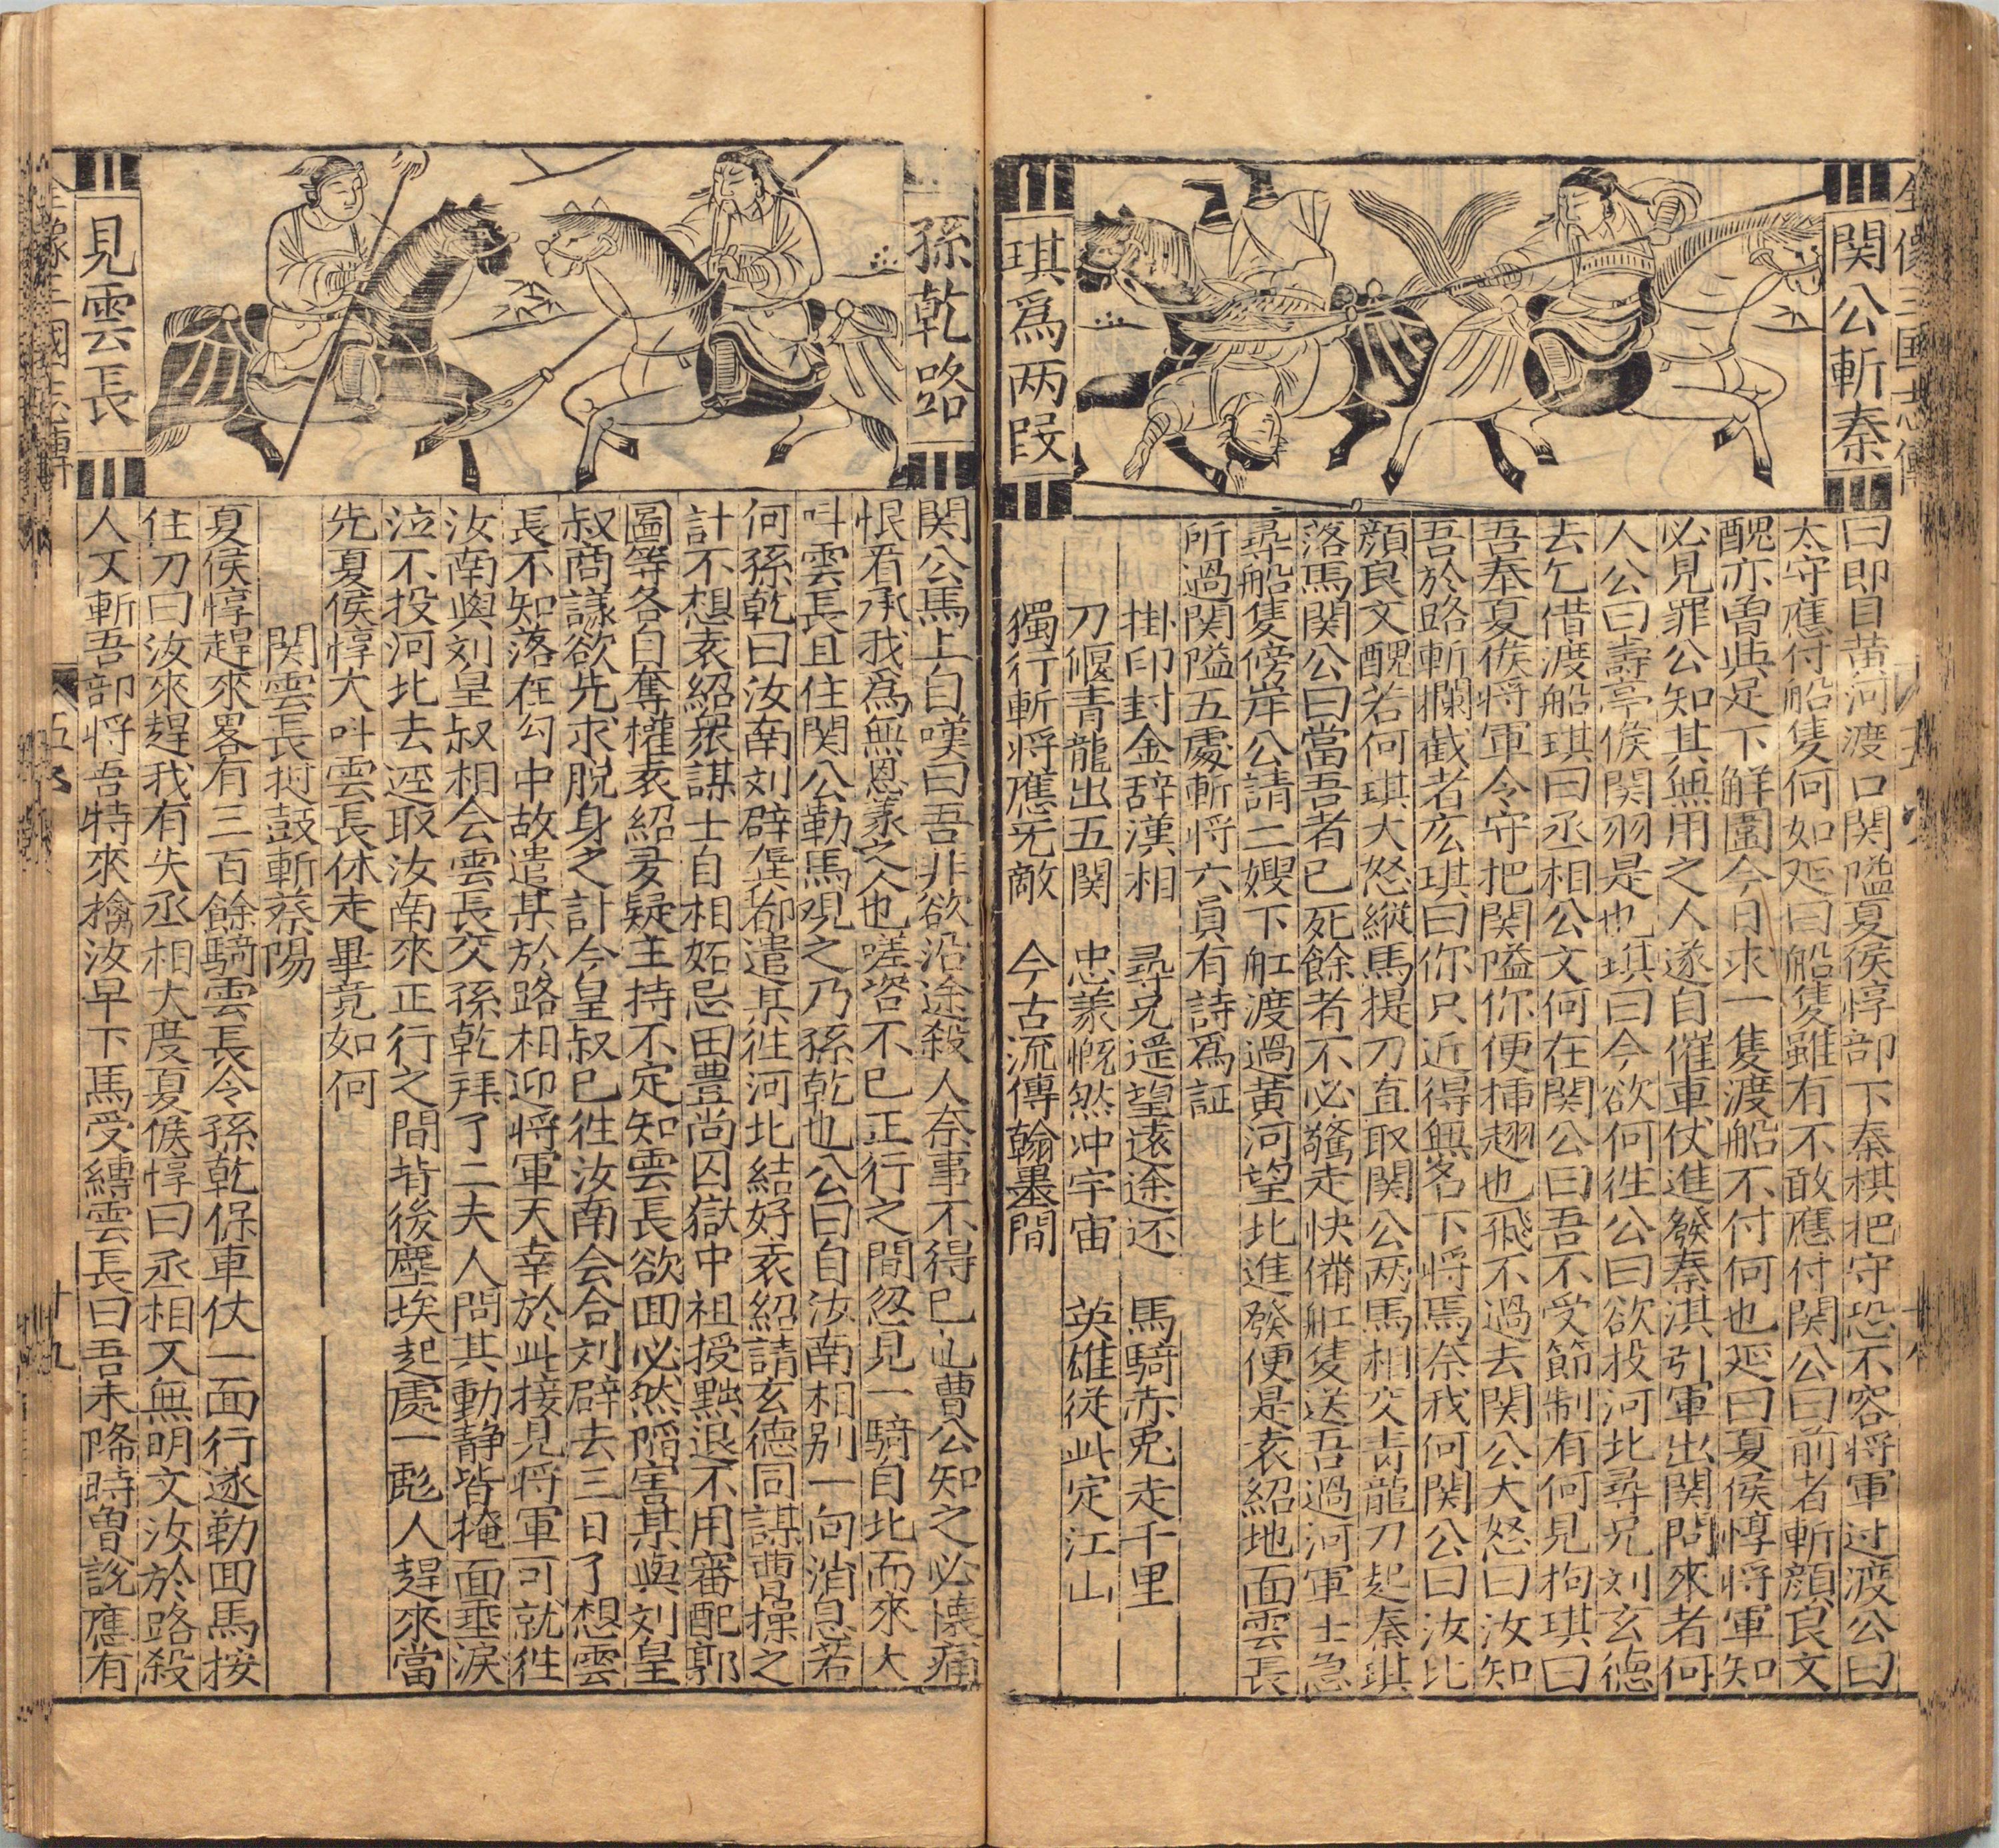 全像三国志傳
関公斬秦
琪爲两叚
曰即目黄河渡口関隘夏侯惇部下秦棋把守恐不容将軍过渡公曰
太守應付船隻何如延曰船隻雖有不敢應付関公曰前者斬顔良文
醜亦曽與足下解圍今日求一隻渡船不付何也延曰夏侯惇将軍知
必見罪公知其無用之人遂自催車仗進發秦淇引軍出関問來者何
人公曰壽亭侯関羽是也琪曰今欲何徃公曰欲投河北尋兄刘玄德
去乞借渡船琪曰丞相公文何在関公曰吾不受節制有何見拘琪曰
吾奉夏侯将軍令守把関隘你便插翅也飛不過去関公大怒曰汝知
吾於路斬攔截者広琪曰你只近得無名下将焉奈我何関公曰汝比
顔良文醜若何琪大怒縱馬提刀直取関公两馬相交青龍刀起秦琪
落馬関公曰當吾者已死餘者不必驚走快備舡隻送吾過河軍士急
尋船隻傍岸公請二嫂下舡渡過黃河望北進發便是袁紹地面雲長
所過関隘五處斬将六員有詩爲証
掛印封金辞漢相　尋兄遥望遠途还　馬騎赤兎走千里
刀偃青龍出五関　忠義慨然冲宇宙　英雄従此定江山
獨行斬将應无敵　今古流傳翰墨間
孫乾路
見雲長
関公馬上自嘆曰吾非欲沿途殺人奈事不得已也曹公知之必懐痛
恨看承我為無恩義之人也嗟咨不已正行之間忽見一騎自北而來大
叫雲長且住関公勒馬覌之乃孫乾也公曰自汝南相别一向消息若
何孫乾曰汝南刘辟龔都遣某徃河北結好袁紹請玄德同謀曹操之
計不想袁紹衆謀士自相妬忌田豊尚囚獄中祖授黜退不用審配郭
圖等各自奪權袁紹多疑主持不定知雲長欲囬必然陷害某與刘皇
叔商議欲先求脱身之計今皇叔已徃汝南会合刘辟去三日了想雲
長不知落在勾中故遣某於路相迎将軍天幸於此接見将軍可就徃
汝南與刘皇叔相会雲長交孫乾拜了二夫人問其動静皆掩面垂涙
泣不投河北去逕取汝南來正行之間背後塵埃起處一彪人趕來當
先夏侯惇大叫雲長休走畢竟如何
関雲長挝鼓斬蔡陽
夏侯惇趕來畧有三百餘騎雲長令孫乾保車仗一面行遂勒囬馬按
住刀曰汝來趕我有失丞相大度夏侯惇曰丞相又無明文汝於路殺
人又斬吾部将吾特來擒汝早下馬受縛雲長曰吾未降時曽說應有
全像三國志傳
十九